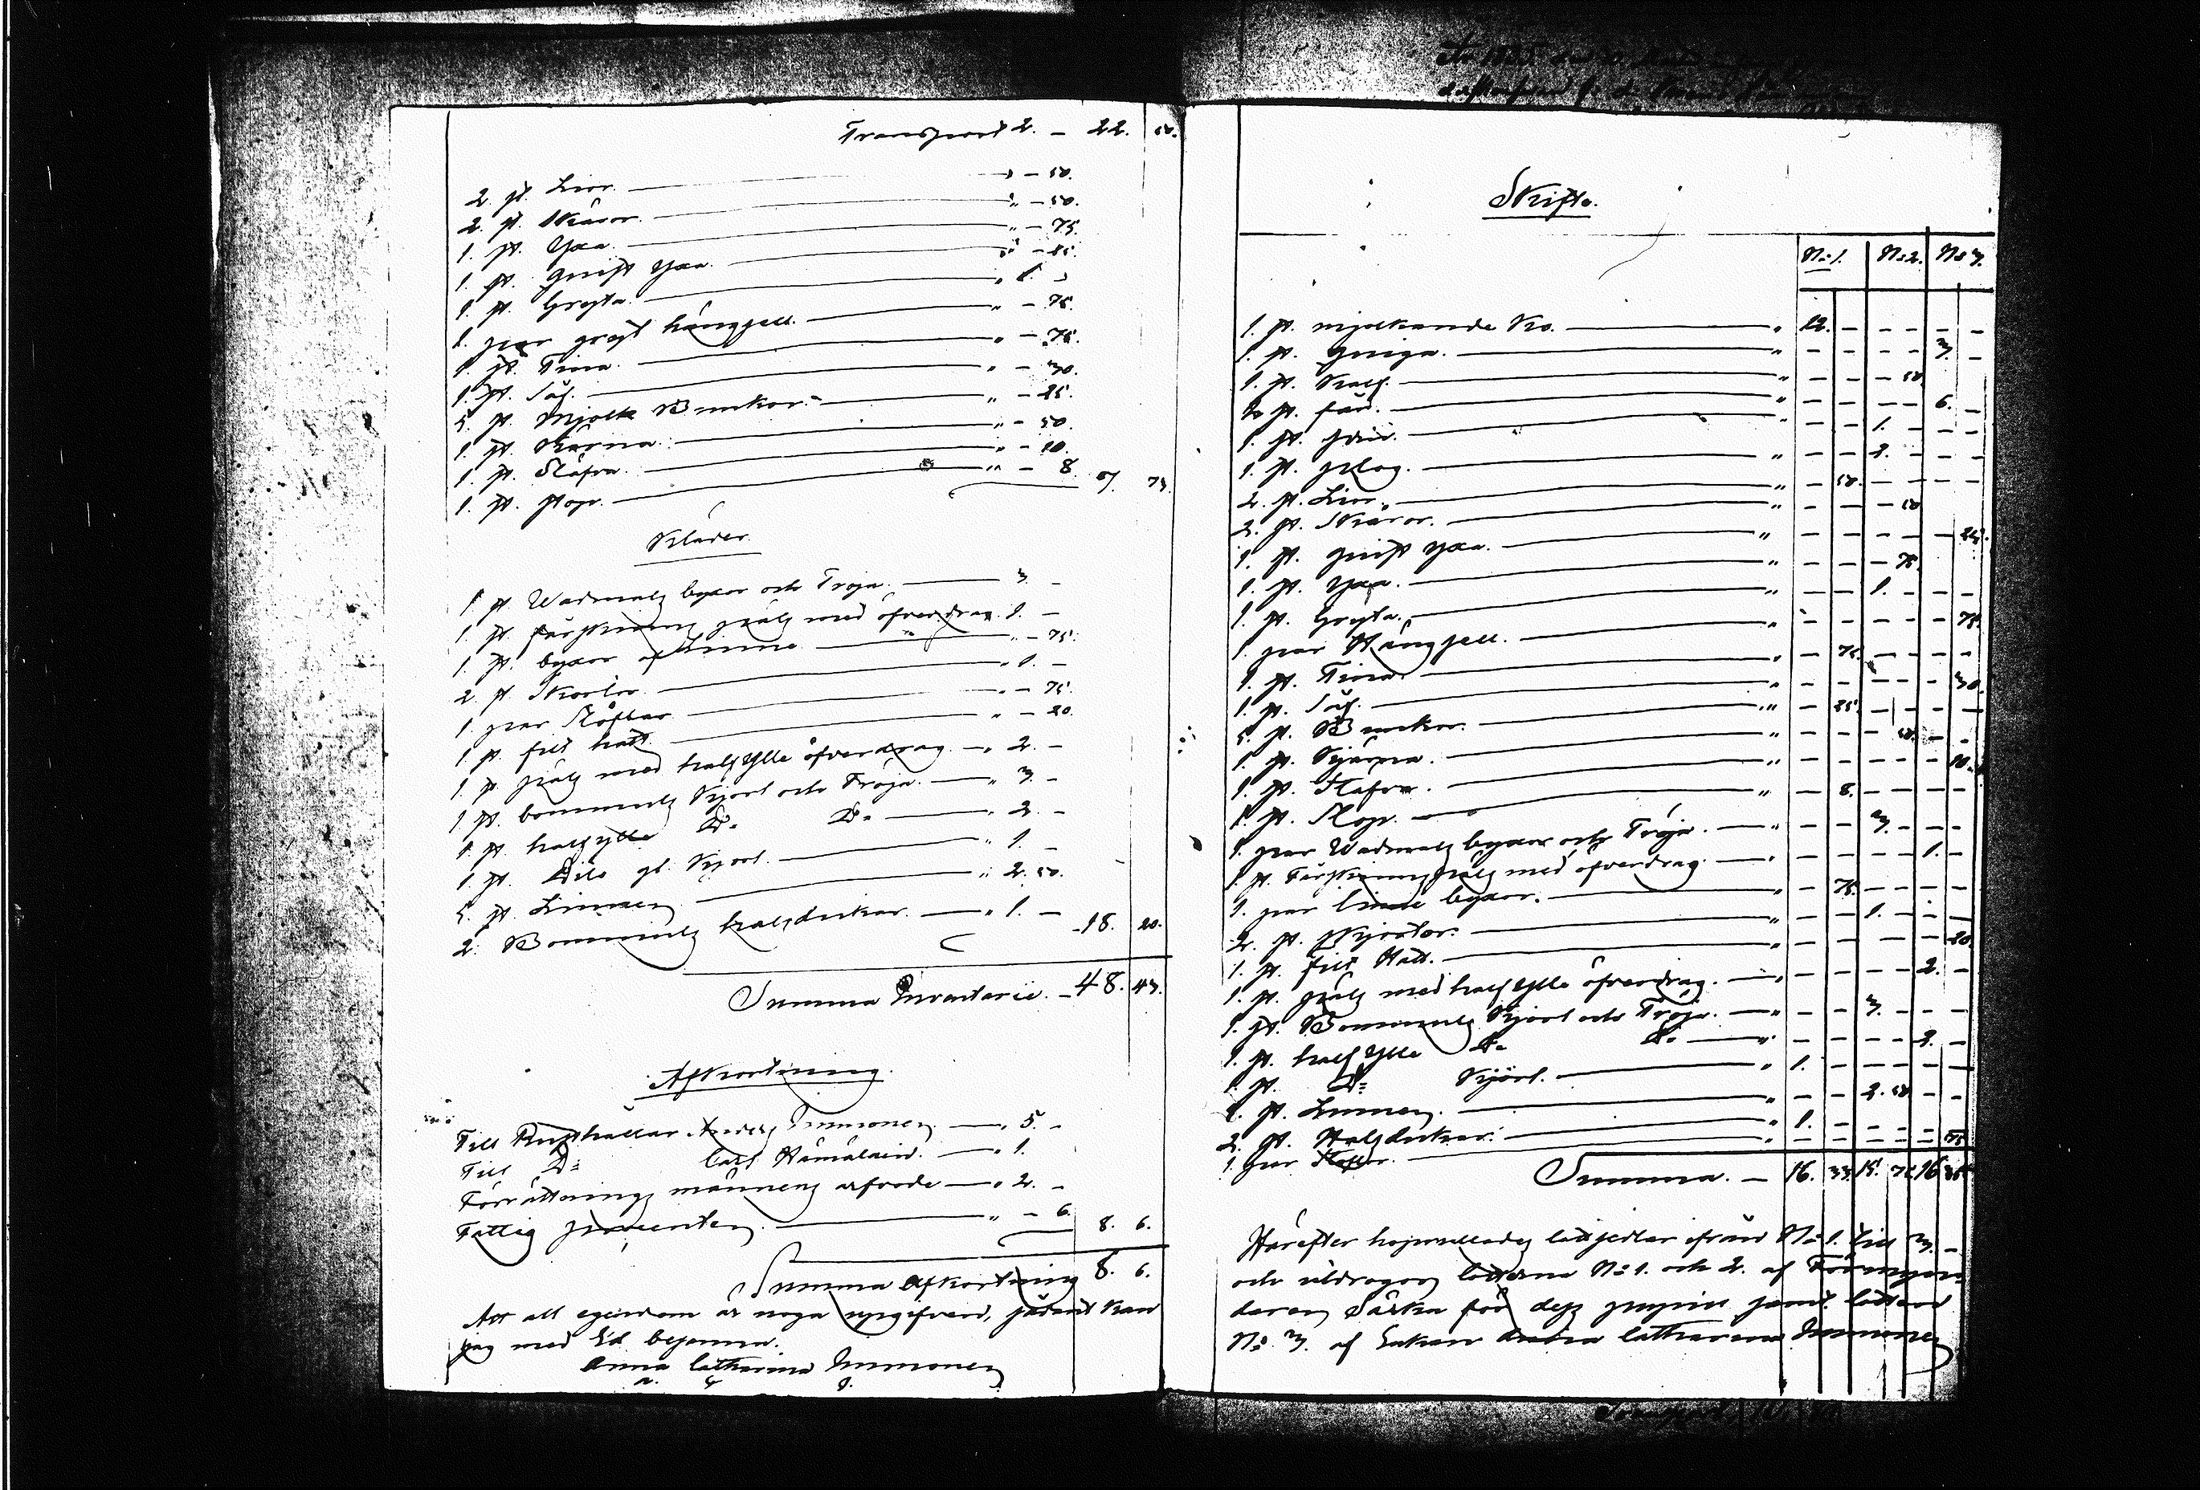 Transport 2. — 22. 50.
2. st. Lior. — „ — 50.
2. st. Skäror. — „ — 50.
1. st. Yxa. — „ — 75.
1. st. qvist Yxa. — „ — 25.
1. st. Gryta. — „ 1. —
1. par gryt hängjell. — „ — 75.
1. st. Tina. — „ — 75.
1. st. Såg. — „ — 30.
5. st. Mjölk Bunkar. — „ — 25.
1. st. Kärna. — „ — 50.
1. st. Stäfva. — „ — 10.
1. st. stop. — „ — 8.
Kläder.
1 st Wadmals byxor och Tröja. — 3. —
1. st. fårskinns päls med öfverdrag. 1. —
1. st. byxor af Linne — „ — 75.
2 st Skortor. — „ 1. —
1 par Stöflar — „ — 75.
1 st. filt hatt — „ — 20.
1. st päls med halfylle öfverdrag. — „ 2. —
1 st. bommuls Kjorl och Tröja. — „ 3. —
1 st. halfylle D:o D:o — „ 2. —
1 st. Dito gl. Kjorl. — „ 1. —
5. st. Linnen — „ 2. 50.
2. Bommuls halsdukar. — „ 1. — 18. 20.
Summa Inventarii. — 48. 43.
Afkortning.
Till Rusthållar Anders Immonen — „ 5. —
Till D:o Carl Hämäläin. — „ 1.
Förrättnings männens arfvode — „ 2. —
Fattig procenten. — „ — 6. 8. 6.
Summa afkortning 8. 6.
Att all egendom är noga uppgifven, sådant kan
jag med Ed bejanna.
Anna Catharina Immonen
Skifte.
N:o 1. N:o 2. N:o 3.
1. st. mjölkande Ko. — „ 12. — — — — —
1. st. qviga. — „ — — — — 3. —
1. st. Kalf. — „ — — — 50.
st. får. — „ — — — — 6. —
1. st. — „ — — 1. — — —
1. st. plog. — „ — — 2. — — —
2. st. Lior. — „ — 50. — — — —
2. st. Skäror. — „ — — — 50
1. st. qvist Yxa. — „ — — — — — 25.
1. st. Yxa. — „ — — — 75.
1. st. Gryta. — „ — — 1. — — —
1. par Hängjell. — „ — — — — — 75.
1. st. Tina. — „ — 75. — — — —
1. st. Såg. — „ — — — — — 30.
5. st. Bunkor. — „ — 25. — — — —
1. st. Kjärna. — „ — — — 50. — —
1. st. Stäfva. — „ — — — — — 10.
1. st. Stop. — „ — 8. — — — —
1. par Wadmals byxor och Tröja. — „ — — 3. — — —
1. st. Fårskinnspäls med öfverdrag. — „ — — — — 1. —
1. par linne byxor. — „ — 75. — — — —
2. st. Skjortor. — „ — — 1. — — —
1. st. filt Hatt. — „ — — — — — 20.
1. st. päls med halfylle öfverdrag. — „ — — — — 2. —
1. st. Bommuls Kjorl och Tröja. — „ — — 3. — — —
1. st. half ylle D:o D:o — „ — — — — 2. —
1. st. D:o Kjorl. — „ 1. — — — — —
st. Linnen. — „ — — 2. 50 — —
2. st. Halsdukar. — „ 1. — — — — —
1. par Stöflar. — „ — — — — — 75
Summa. — 16. 33. 15. 75. 16
Härefter hopvellades lottsedlar ifrån N:o 1. till 3. —
och utdrogos lotterna N:o 1. och 2. af Förmyn-
daren Särka för dess pupiller samt lotten
N:o 3. af Enkan Anna Catharina Immonen